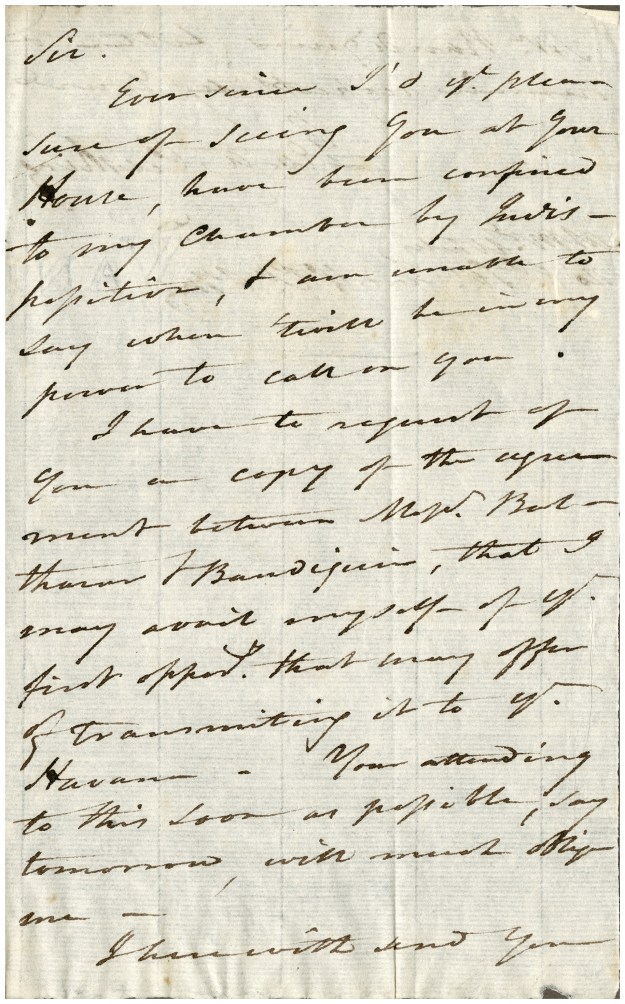 Sir.
Ever since I'd ye. plea
sure of seeing You at Your
House, have been confined
to my Chamber by Indis-
position, & am unable to
say when 'twill be in my
power to call on you.
I have to request of
You a copy of the agree
ment between Messrs. Bal-
thazar & Baudiguin, that I
may avail myself of ye.
first oppory. that may offer
of transmiting it to ye.
Havana - Your attending
to this soon as possible, say
tomorrow, will much oblige
me -
I herewith send You